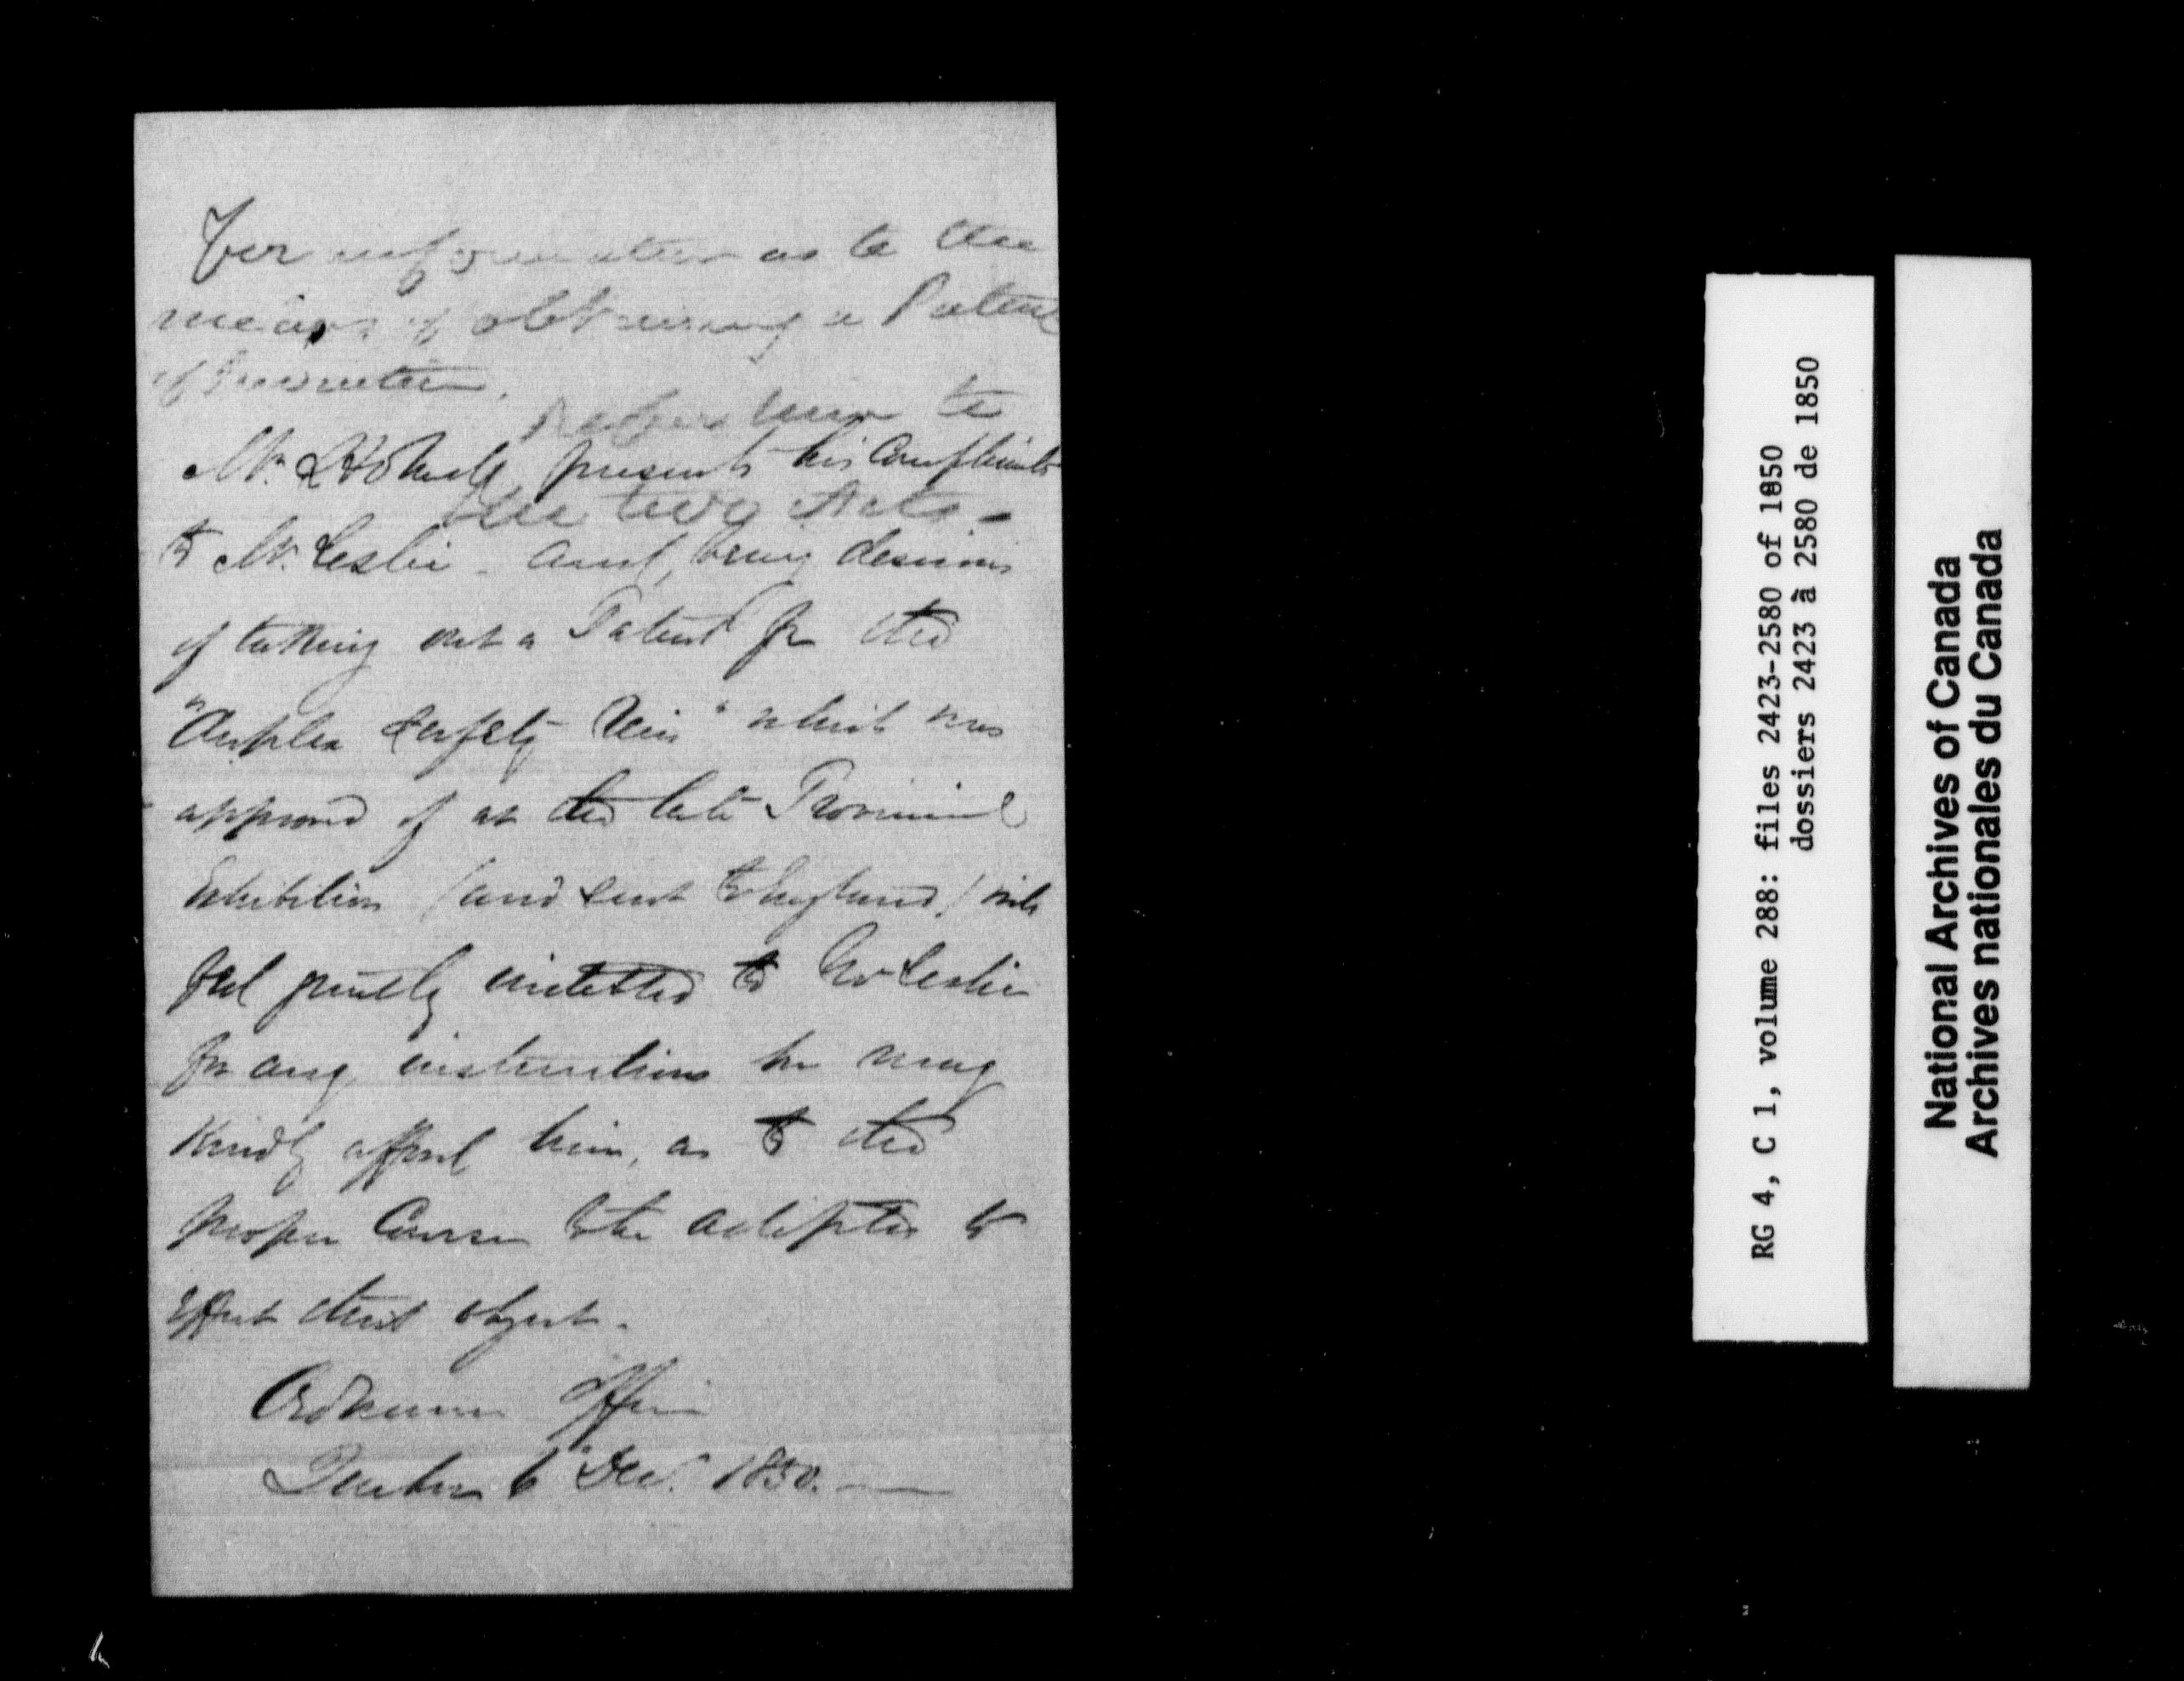 For information as to the
means of obtaining a Patent
of Invention.
Refer him to
the two Acts -
Mr. presents his Compliments
to Mr. Leslie - and, being desirous
of taking out a Patent for the
"Duplex Safety Rein" which was
approved of at the late Provincial
Exhibition (and sent to England) will
feel greatly indebted to Mr Leslie
for any instructions he may
kindly afford him, as to the
proper Course to be adopted to
effect that object.
Ordnance Office
Quebec 6 Dec. 1850.
RG 4, C 1, volume 288: files 2423-2580 of 1850
dossiers 2423 à 2580 de 1850
National Archives of Canada
Archives nationales du Canada